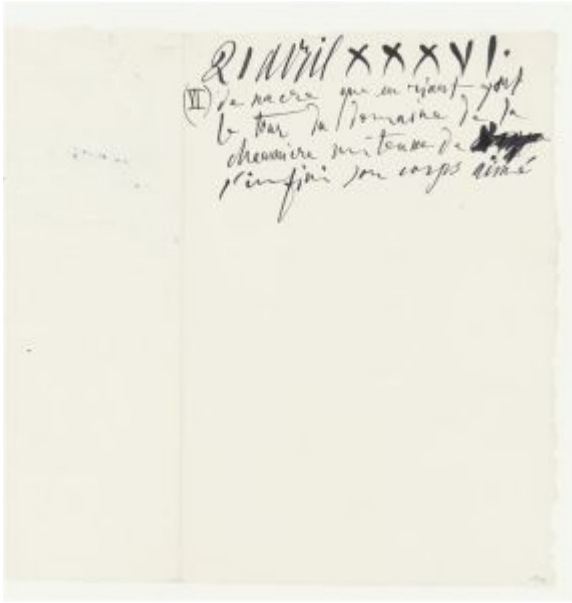 21 avril XXXVI.
(VI) de nacre que en riant font
le tour du domaine de la
chaumière su tenue de
l'infini son corps aimé